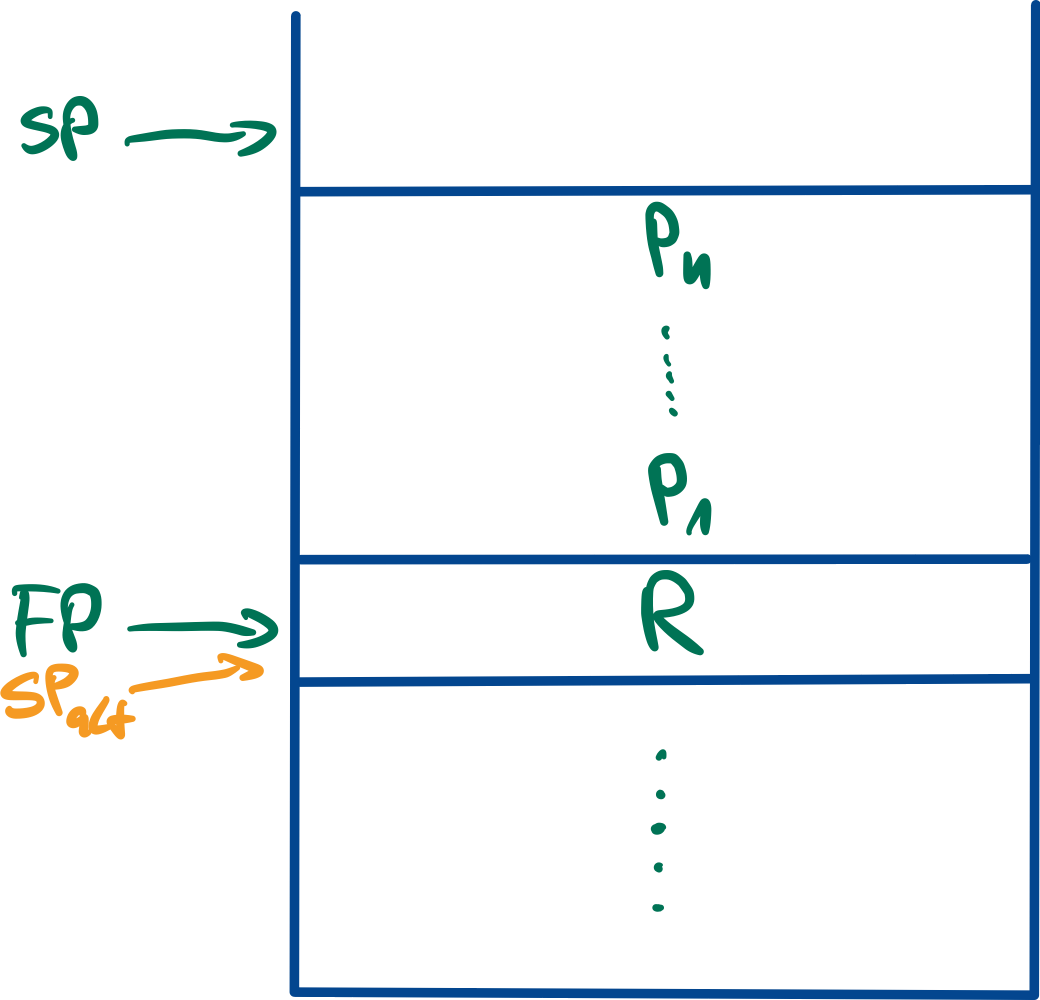 SP
Pn
P1
FP
R
SPalt